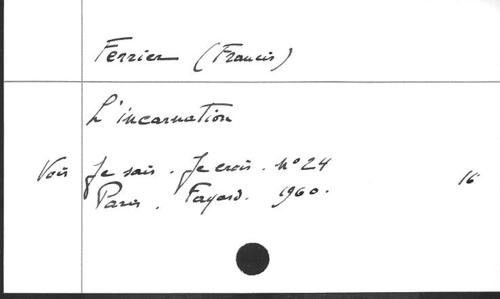 Ferrier (Francis)
L'incarnation
Voir Je sais. Je crois. N° 24
Paris. Fayard. 1960.
16